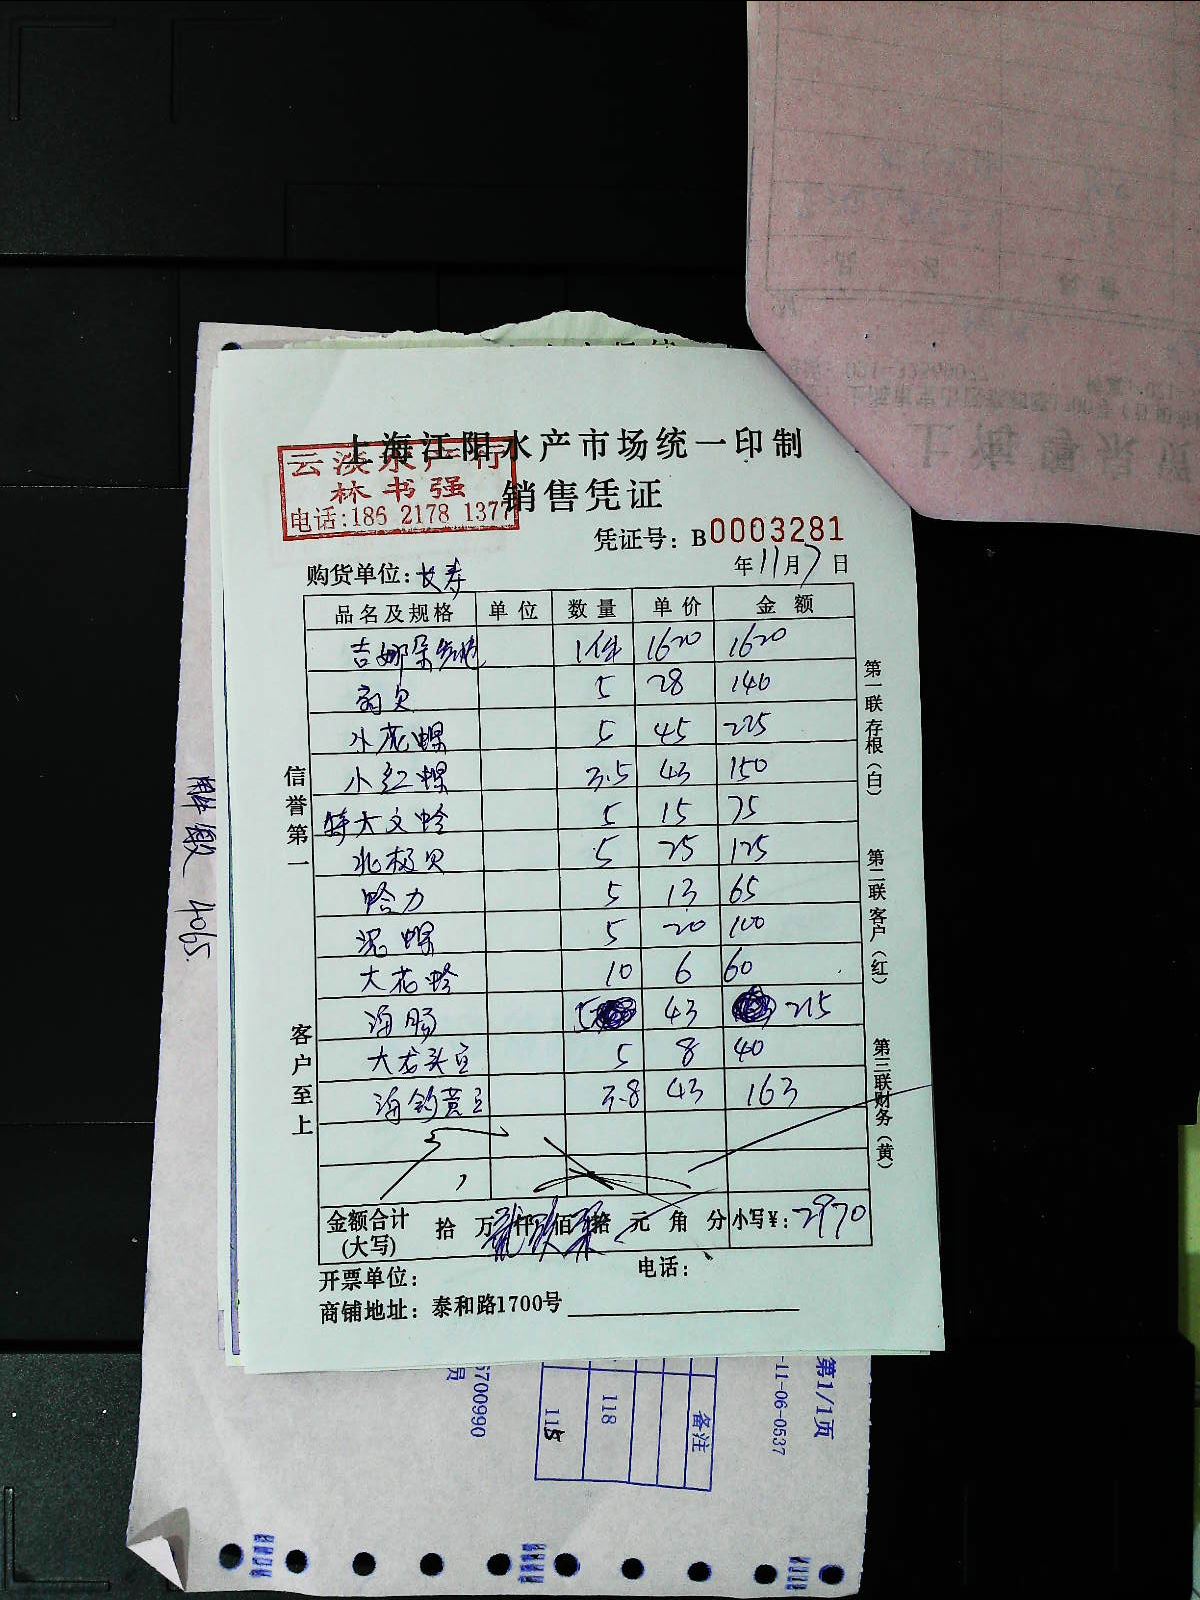 上海江阳水产市场统一印制
云淡水产行
林书强
电话:186 2178 1377
销售凭证
凭证号: B0003281
购货单位: 长寿
年11月7日
品名及规格 单位 数量 单价 金额
吉娜朵 1件 1620 1620
贝 5 28 140
小花螺 5 45 225
小红螺 3.5 43 150
特大文蛤 5 15 75
北极贝 5 25 125
蛤力 5 13 65
泥螺 5 20 100
大花蛤 10 6 60
海肠 5 43 215
大龙头豆 5 8 40
海钓黄豆 3.8 43 163
金额合计(大写) 拾 万 仟 佰 拾 元 角 分 小写¥: 2970
开票单位: 电话:
商铺地址: 泰和路1700号
信誉第一
客户至上
第一联存根(白)
第二联客户(红)
第三联财务(黄)
4065
第1/1页
-11-06-0537
备注
118
115
5700990
员